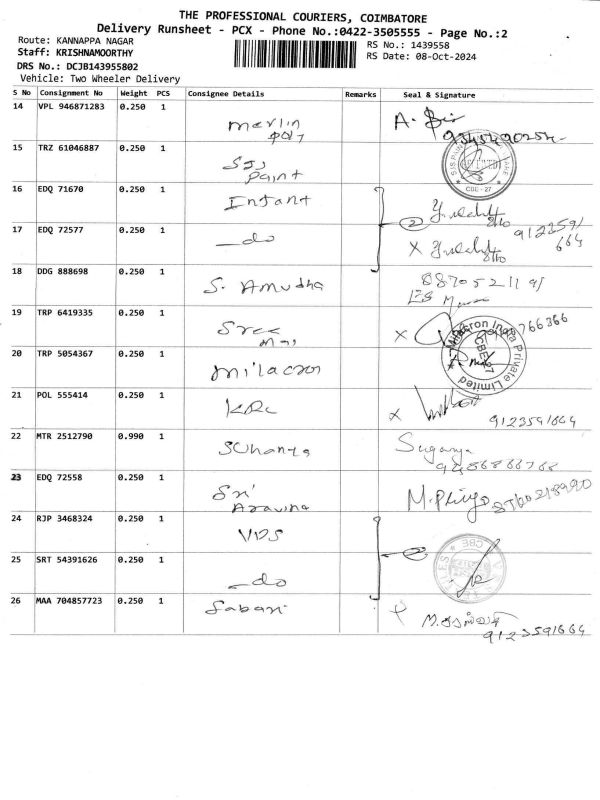 THE PROFESSIONAL COURIERS, COIMBATORE
Delivery Runsheet - PCX - Phone No.:0422-3505555 - Page No.:2
Route: KANNAPPA NAGAR
Staff: KRISHNAMOORTHY
DRS No.: DCJB143955802
Vehicle: Two Wheeler Delivery
RS No.: 1439558
RS Date: 08-Oct-2024
S No Consignment No Weight PCS Consignee Details Remarks Seal & Signature
14 VPL 946871283 0.250 1 merlin
15 TRZ 61046887 0.250 1 Paint
16 EDQ 71670 0.250 1 Infant
17 EDQ 72577 0.250 1 do 912359/
664
18 DDG 888698 0.250 1 S. Amudha
19 TRP 6419335 0.250 1 Sree
20 TRP 5054367 0.250 1 milacron
Milacron India Private Limited
21 POL 555414 0.250 1 9123591664
22 MTR 2512790 0.990 1 Suganya
9486866768
23 EDQ 72558 0.250 1 Sri
Aravind
24 RJP 3468324 0.250 1 VDS
25 SRT 54391626 0.250 1 do
CBE
26 MAA 704857723 0.250 1 Sabari
9123591664